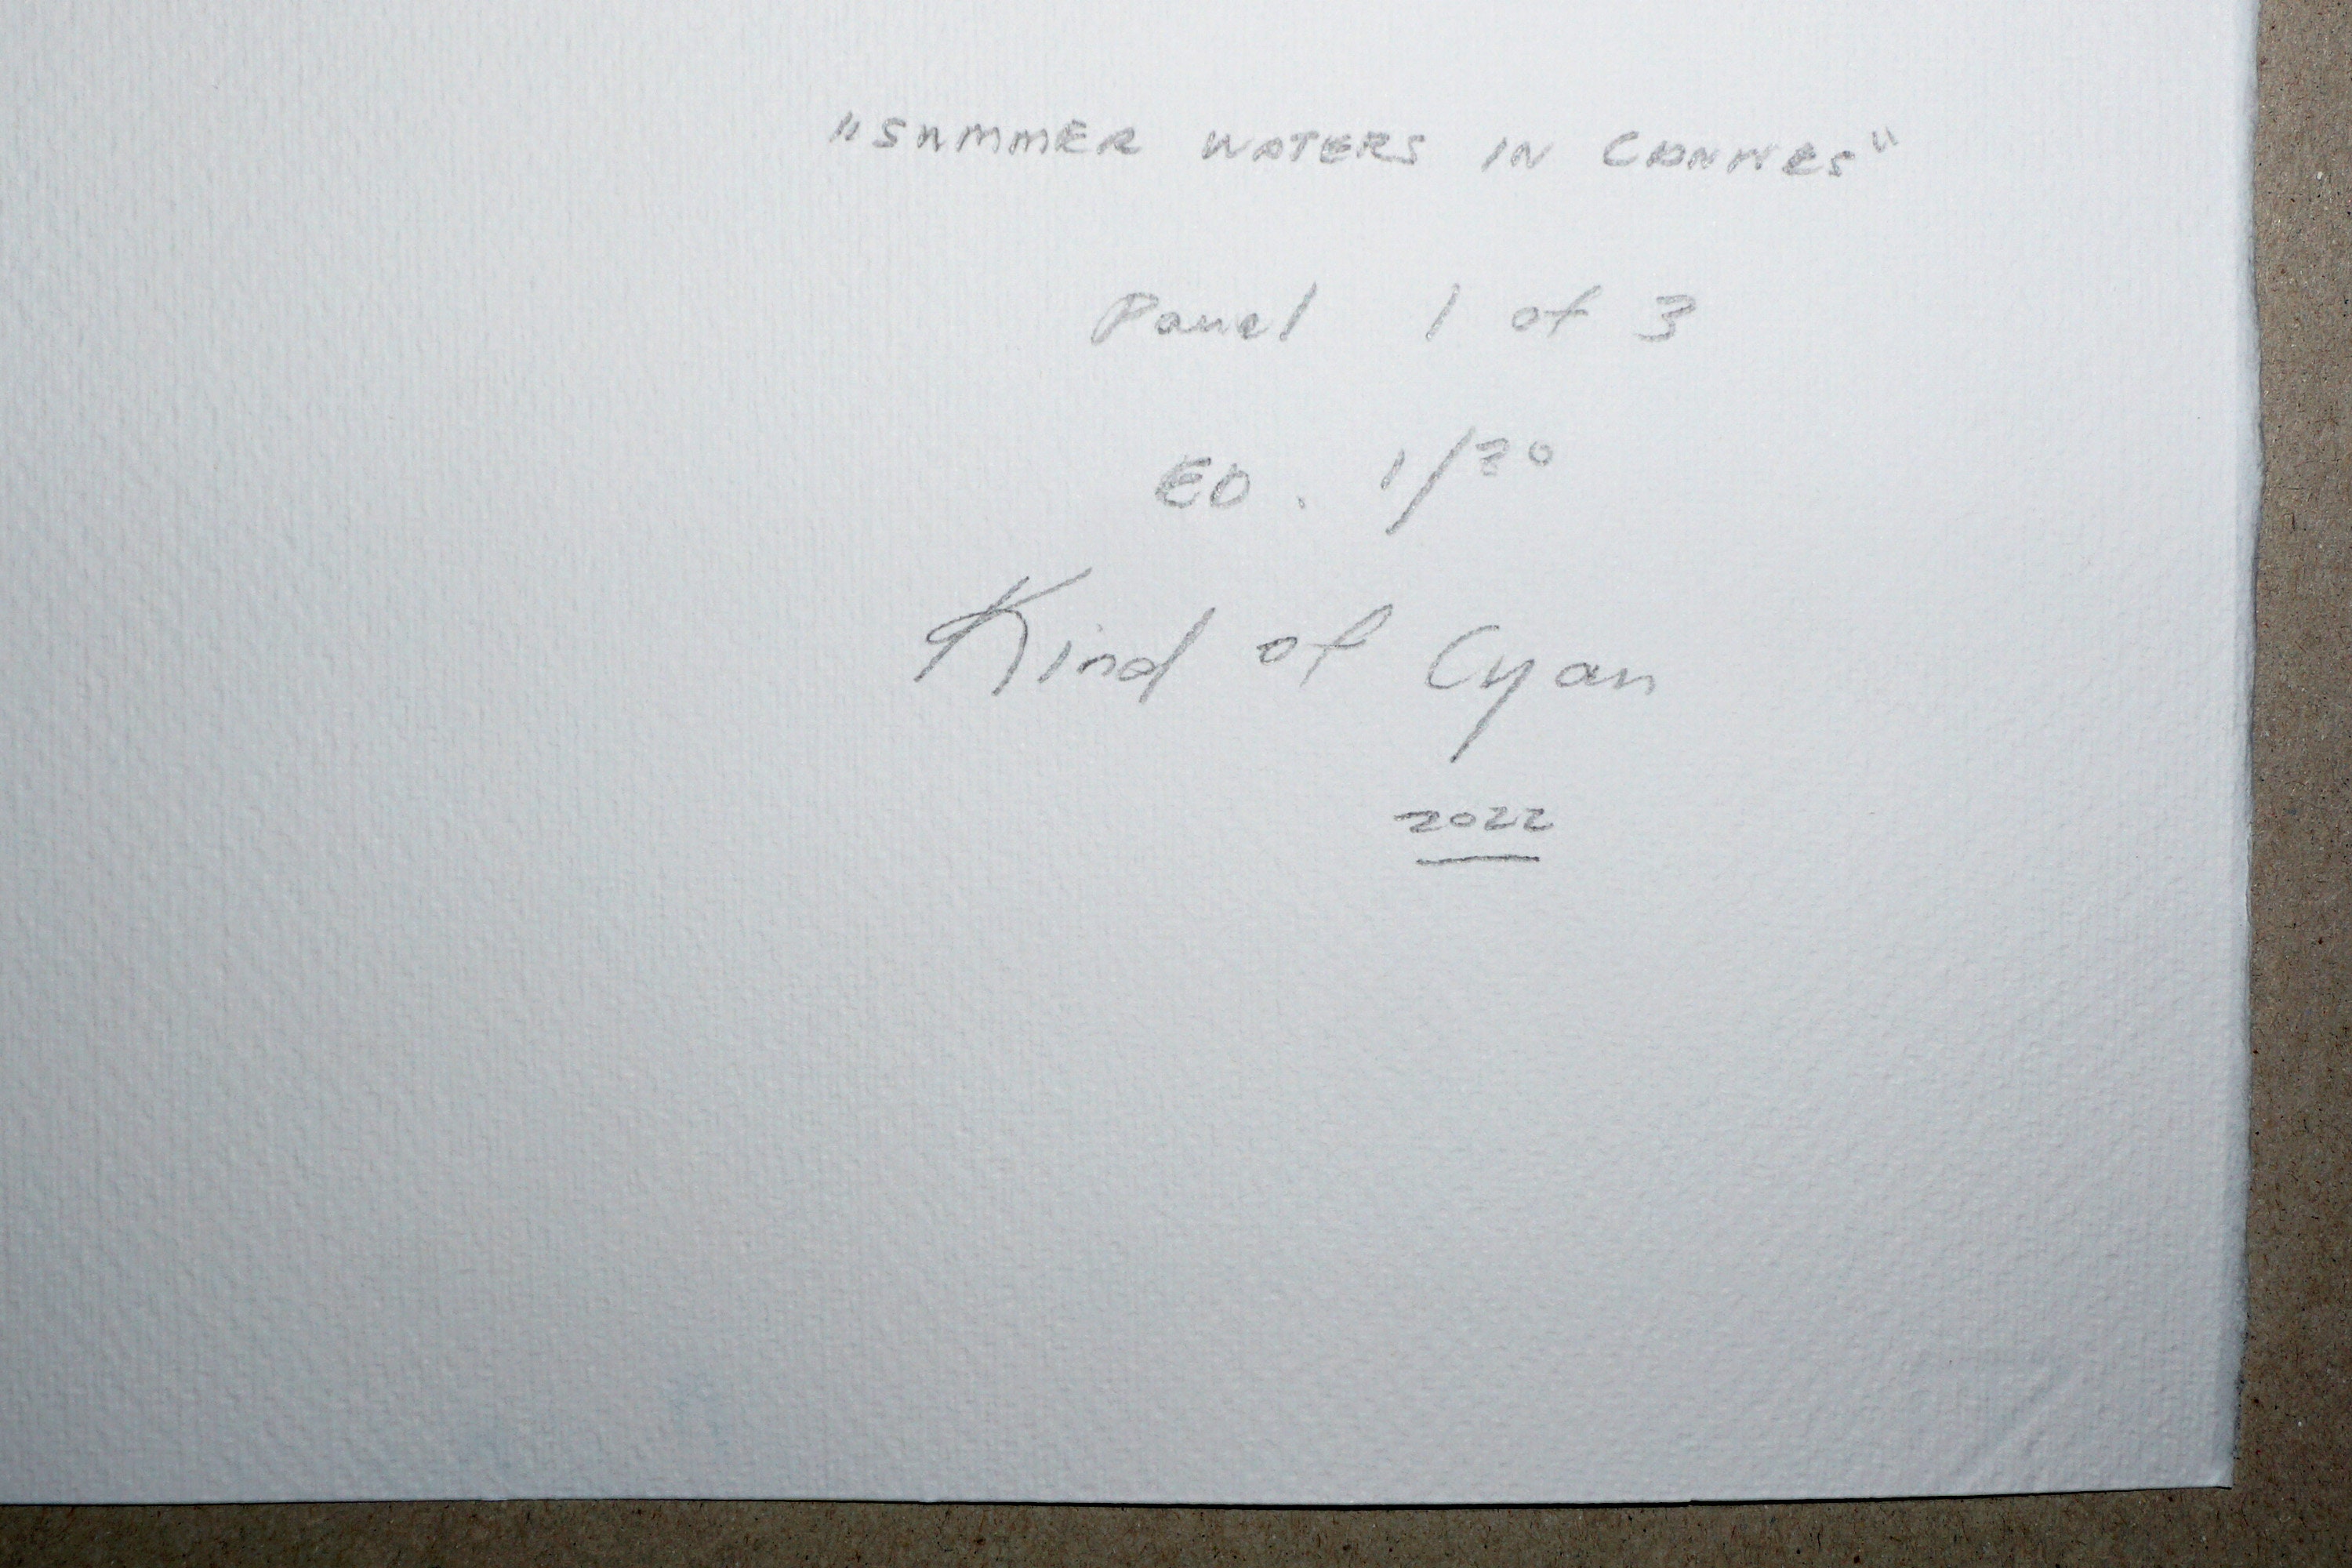 "SUMMER WATERS IN CANNES"
Panel 1 of 3
ED.
Kind of Cyan
2022